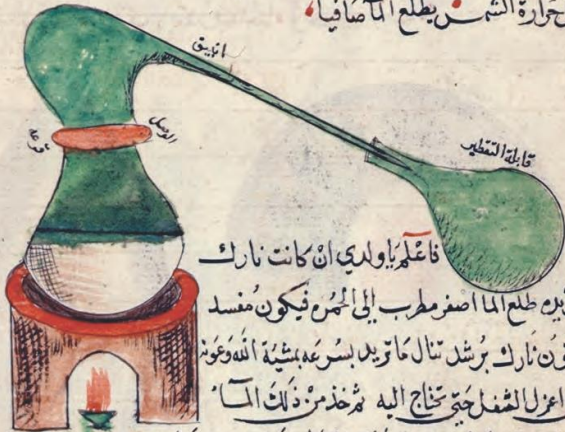 حرارة الشمس يطلع الما صافيا
انبيق
الوصل
قرعه
قابلة التقطير
فاعلم يا ولدي ان كانت نارك
طلع الما اصفر مطرب إلى الحمره فيكون مفسد
نارك برشد تنال ما تريد بسرعه بمشية الله وعونه
اعزل الثفل حتى تحتاج اليه ثم خذ من ذلك الما